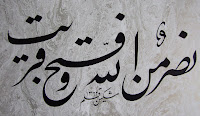 نصر من الله وفتح قریب